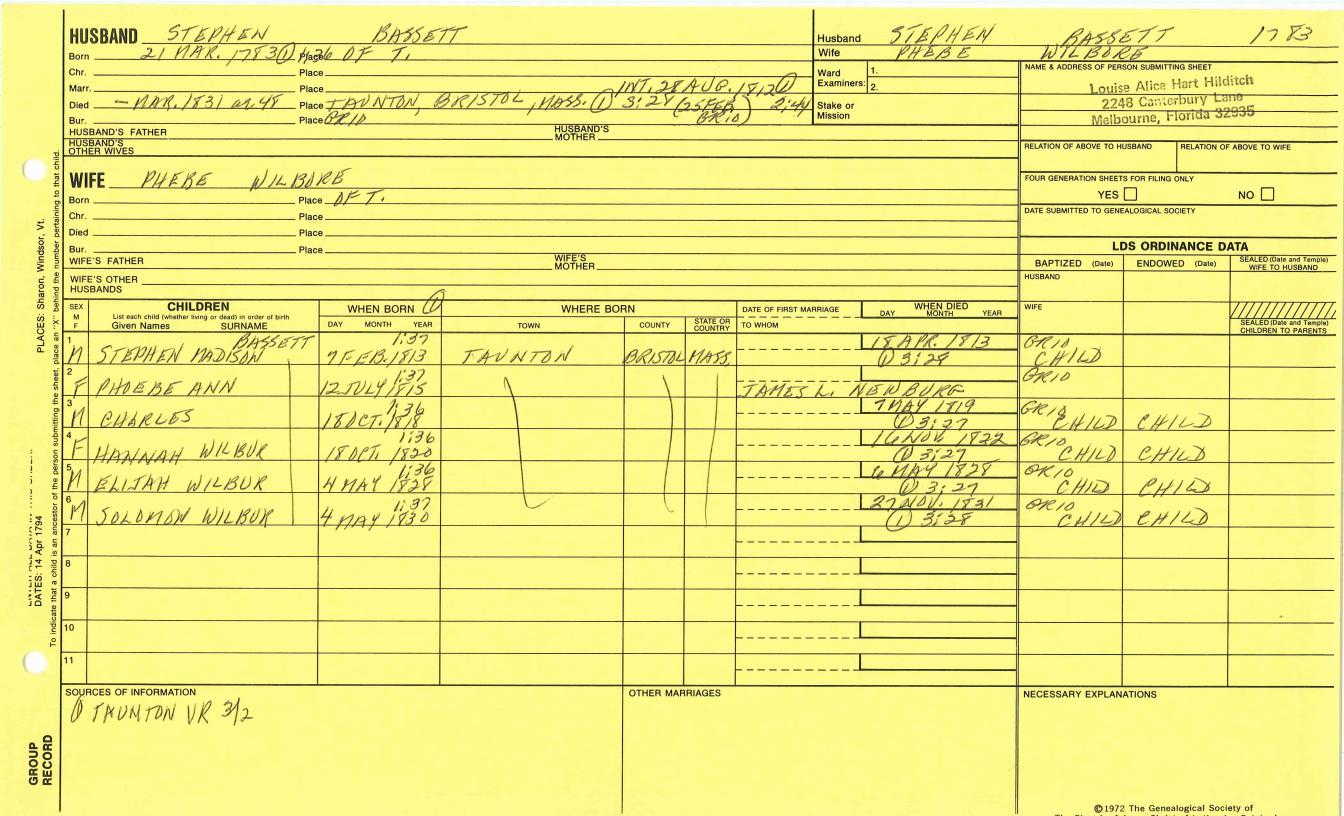 HUSBAND STEPHEN BASSETT
Born 21 MAR. 1783 ① 1:36 Place OF T.
Chr. Place
Marr. Place INT. 28 AUG. 1812 ①
Died — MAR. 1831 Place TAUNTON, BRISTOL, MASS. ① 3:28 2:44
Bur. Place GRID
HUSBAND'S FATHER HUSBAND'S MOTHER
HUSBAND'S OTHER WIVES
WIFE PHEBE WILBORE
Born Place OF T.
Chr. Place
Died Place
Bur. Place
WIFE'S FATHER WIFE'S MOTHER
WIFE'S OTHER HUSBANDS
Husband STEPHEN BASSETT 1783
Wife PHEBE WILBORE
Ward Examiners: 1.
2.
Stake or Mission
NAME & ADDRESS OF PERSON SUBMITTING SHEET
Louise Alice Hart Hilditch
2248 Canterbury Lane
Melbourne, Florida 32935
RELATION OF ABOVE TO HUSBAND RELATION OF ABOVE TO WIFE
FOUR GENERATION SHEETS FOR FILING ONLY
YES NO
DATE SUBMITTED TO GENEALOGICAL SOCIETY
LDS ORDINANCE DATA
BAPTIZED (Date) ENDOWED (Date) SEALED (Date and Temple) WIFE TO HUSBAND
HUSBAND
WIFE
SEALED (Date and Temple) CHILDREN TO PARENTS
SEX M F
CHILDREN
List each child (whether living or dead) in order of birth
Given Names SURNAME
WHEN BORN ①
DAY MONTH YEAR
WHERE BORN
TOWN COUNTY STATE OR COUNTRY
DATE OF FIRST MARRIAGE
TO WHOM
WHEN DIED
DAY MONTH YEAR
1 BASSETT 1:37 18 APR. 1813 GRID
M STEPHEN MADISON 7 FEB. 1813 TAUNTON BRISTOL MASS. ① 3:28 CHILD
2 1:37 GRID
F PHOEBE ANN 12 JULY 1815 JAMES L. NEWBURG
3 1:36 7 MAY 1819 GRID
M CHARLES 18 OCT. 1818 ① 3:27 CHILD CHILD
4 1:36 16 NOV 1822 GRID
F HANNAH WILBUR 18 OCT. 1820 ① 3:27 CHILD CHILD
5 1:36 6 MAY 1828 GRID
M ELIJAH WILBUR 4 MAY 1828 ① 3:27 CHILD CHILD
6 1:37 27 NOV. 1831 GRID
M SOLOMON WILBUR 4 MAY 1830 ① 3:28 CHILD CHILD
7
8
9
10
11
SOURCES OF INFORMATION
① TAUNTON VR 3/2
OTHER MARRIAGES
NECESSARY EXPLANATIONS
©1972 The Genealogical Society of
PLACES: Sharon, Windsor, Vt.
DATES: 14 Apr 1794
To indicate that a child is an ancestor of the person submitting the sheet, place an "X" behind the number pertaining to that child.
GROUP RECORD